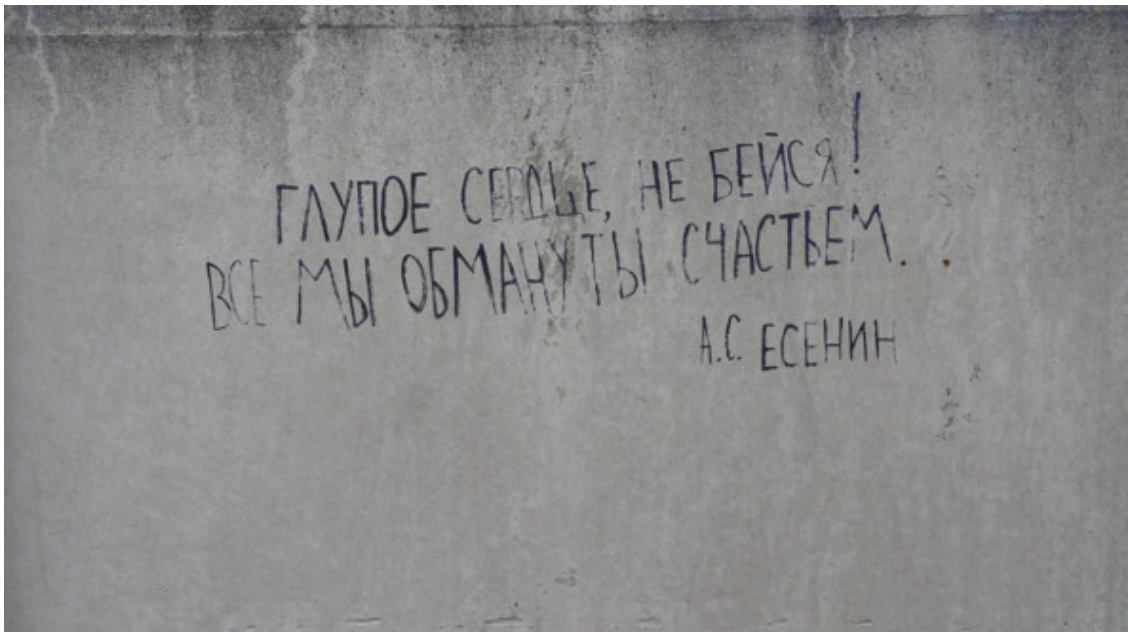 ГЛУПОЕ СЕРДЦЕ, НЕ БЕЙСЯ!
ВСЕ МЫ ОБМАНУТЫ СЧАСТЬЕМ.
А.С. ЕСЕНИН